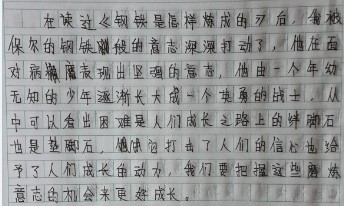 在读过《钢铁是怎样炼成的》后，我被
保尔的钢铁般的意志深深打动了，他在面
对病魔表现出坚强的意志，他由一个年幼
无知的少年逐渐长大成一个英勇的战士，从
中可以看出困难是人们成长之路上的绊脚石
也是垫脚石，打击了人们的信心也给
予了人们成长的动力，我们要把握这些磨炼
意志的机会来更好成长。